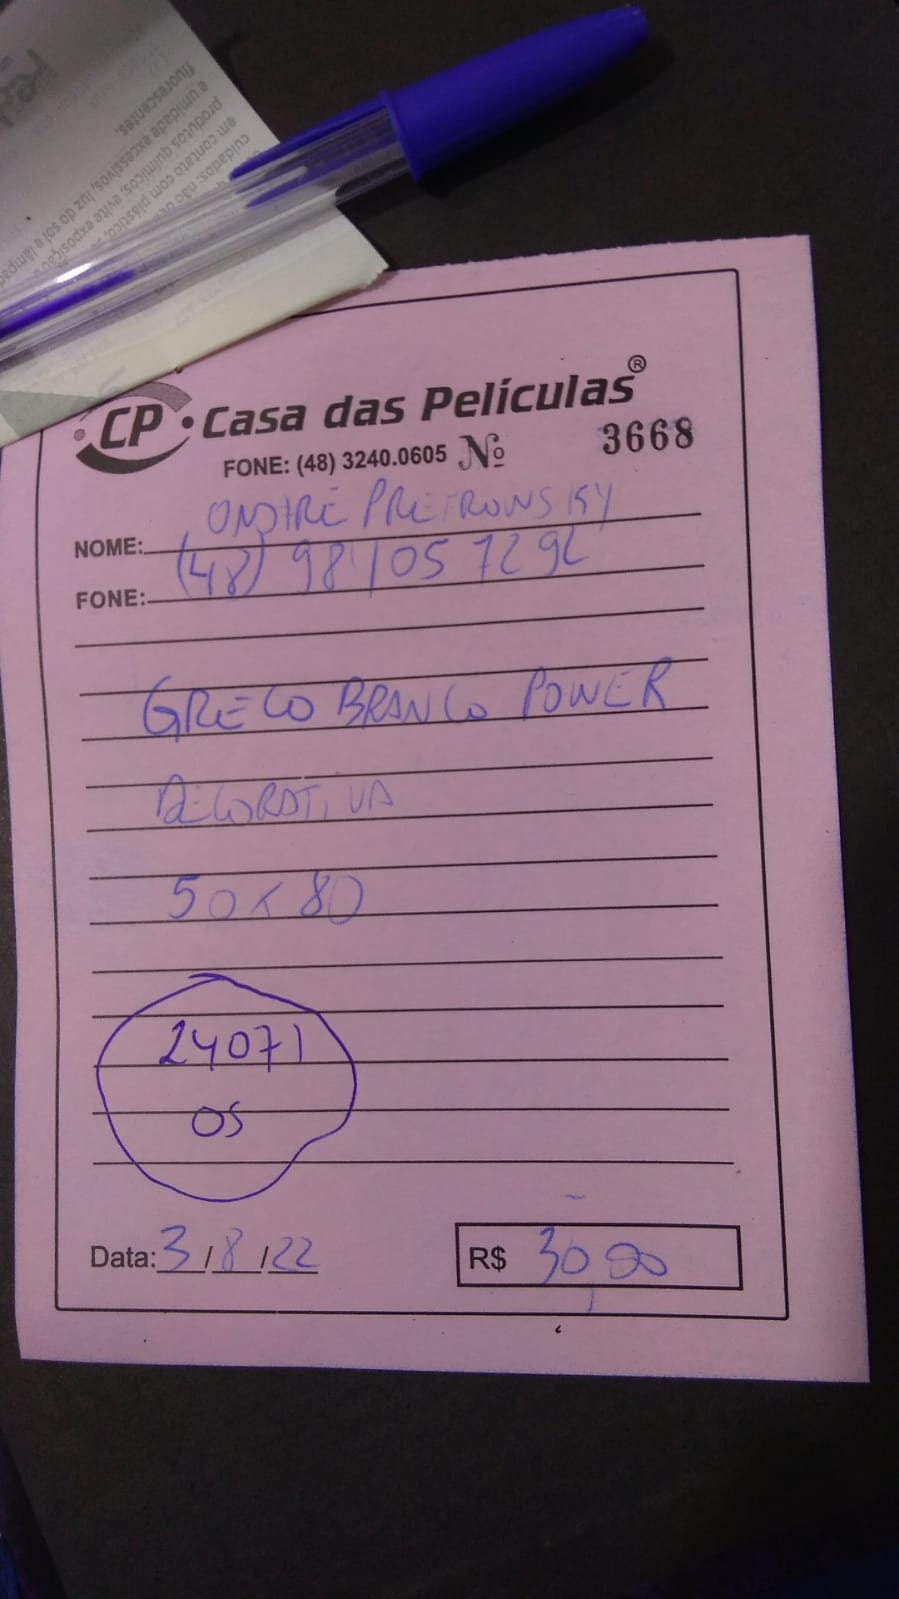 fluorescentes.
e umidade excessivos, luz do sol e lâmpad
produtos químicos, evite exposição
em contato com plástico,
cuidados: não
CP • Casa das Películas®
FONE: (48) 3240.0605 Nº 3668
NOME: ONDIRÉ PRETROWSKY
FONE: (48) 98405 7292
GRECO BRANCO POWER
DECORATIVA
50 x 80
24071
OS
Data: 3/8/22 R$ 30,00